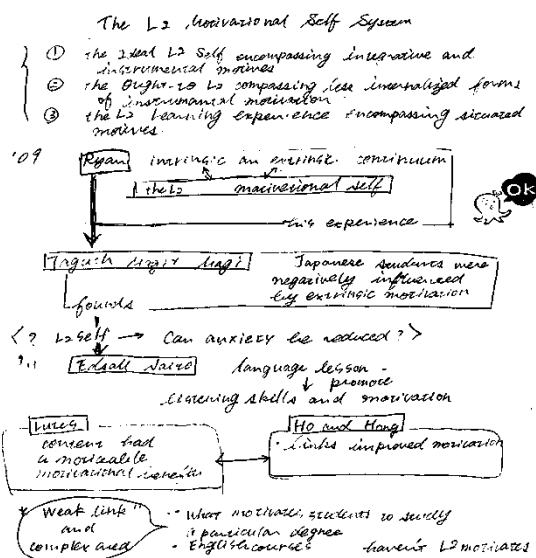 The L2 Motivational Self System
① the Ideal L2 Self encompassing integrative and
instrumental motives
② the Ought-to L2 compassing less internalized forms
of instrumental motivation
③ the L2 Learning experience encompassing situated
motives.
'09
Ryan intringic an extringic continuum
the L2 motivational self
his experience
OK
Taguch Magir Magi
Japanese students were
negatively influenced
by extringic motivation
founds
< ? L2 self → Can anxiety be reduced? >
Edsall Saito language lesson -
↓ promote
listening skills and motivation
content had
a noticeable
motivational benefits
Ho and Hong
・links improved motivation
"Weak link"
and
complex area
・What motivates students to study
a particular degree
・English courses haven't L2 motivates